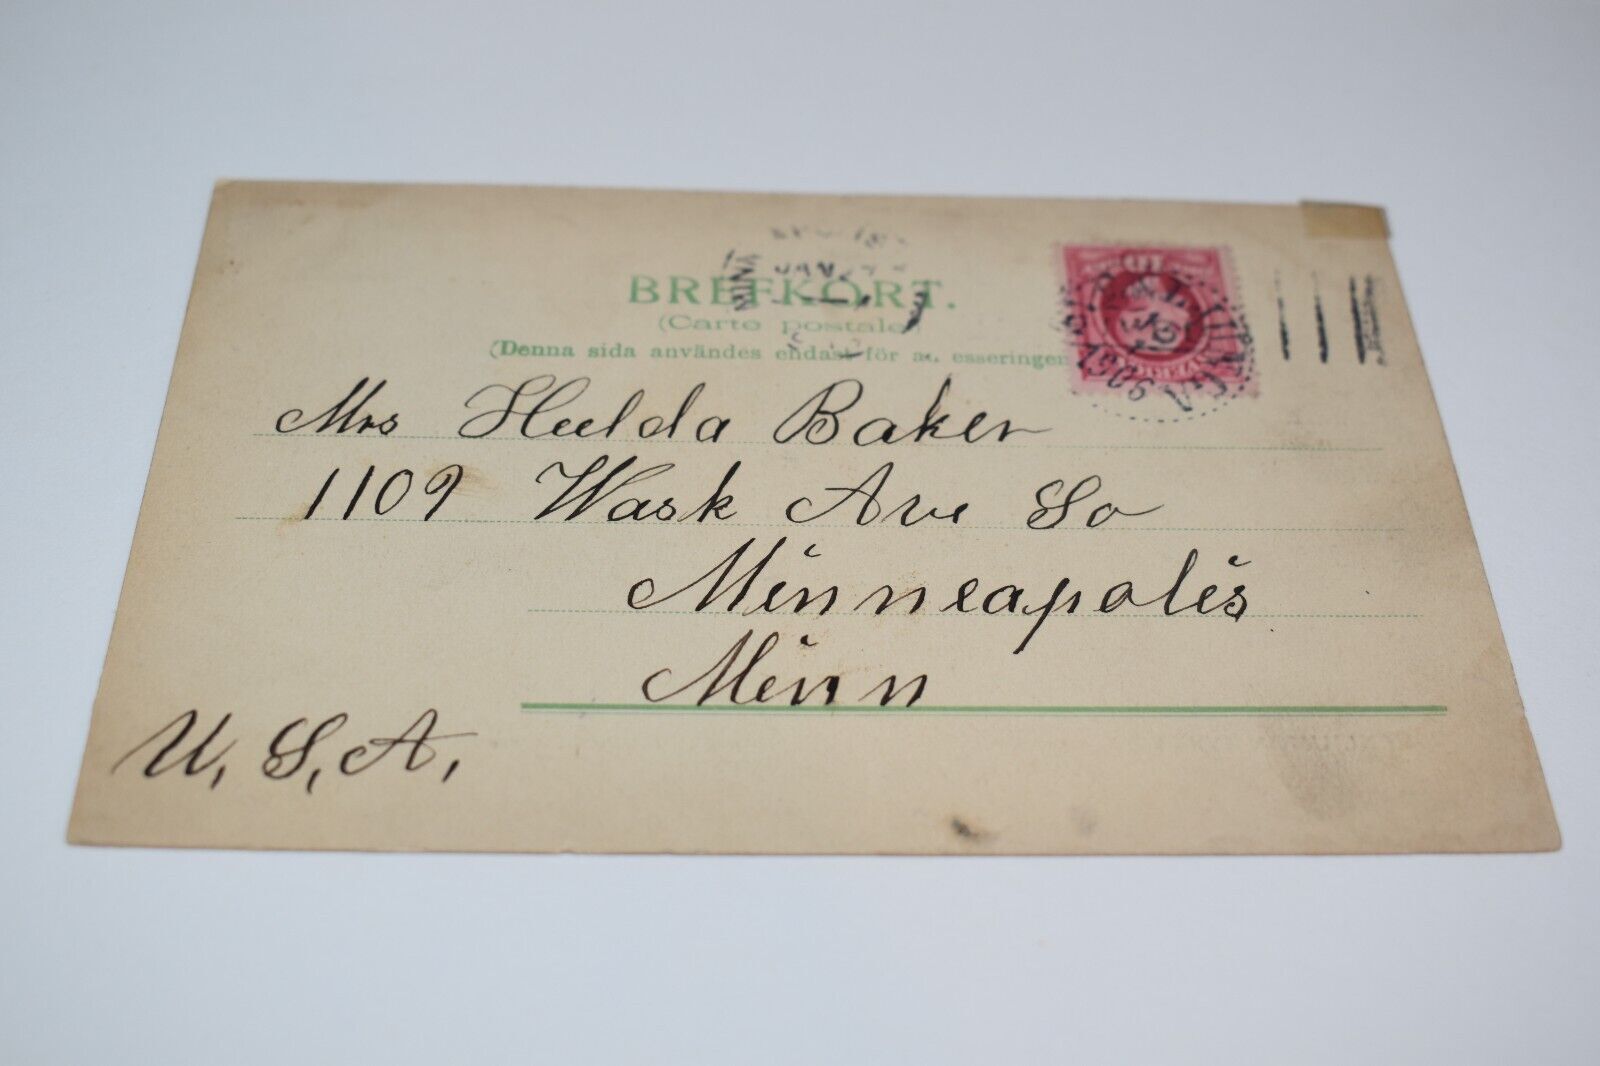 MINN JAN
BREFKORT.
(Carte postale
(Denna sida användes endast för
10
SVERIGE
1905
Mrs Hulda Baker
1109 Wask Ave So
Minneapolis
Minn
U, S, A,